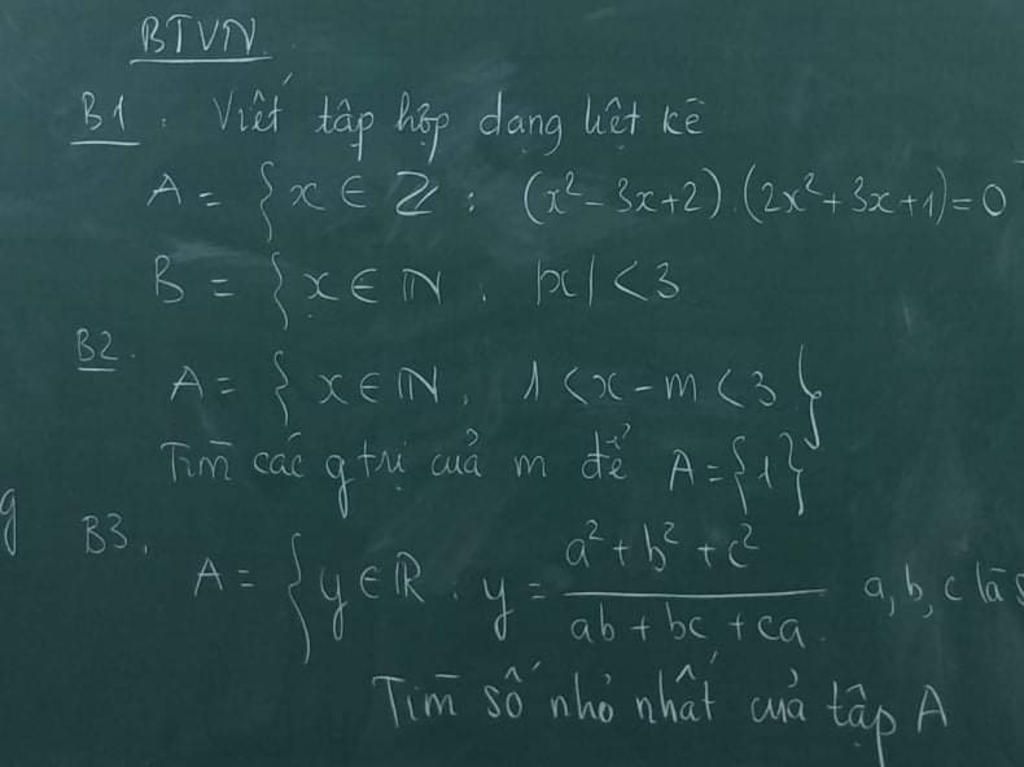 BTVN
B1. Viết tập hợp dạng liệt kê
A = { x ∈ ℤ : (x² - 3x + 2).(2x² + 3x + 1) = 0
B = { x ∈ ℕ, |x| < 3
B2.
A = { x ∈ ℕ, 1 < x - m < 3 }
Tìm các g trị của m để A = {1}
B3.
A = { y ∈ ℝ, y = (a² + b² + c²)/(ab + bc + ca) a, b, c là
Tìm số nhỏ nhất của tập A